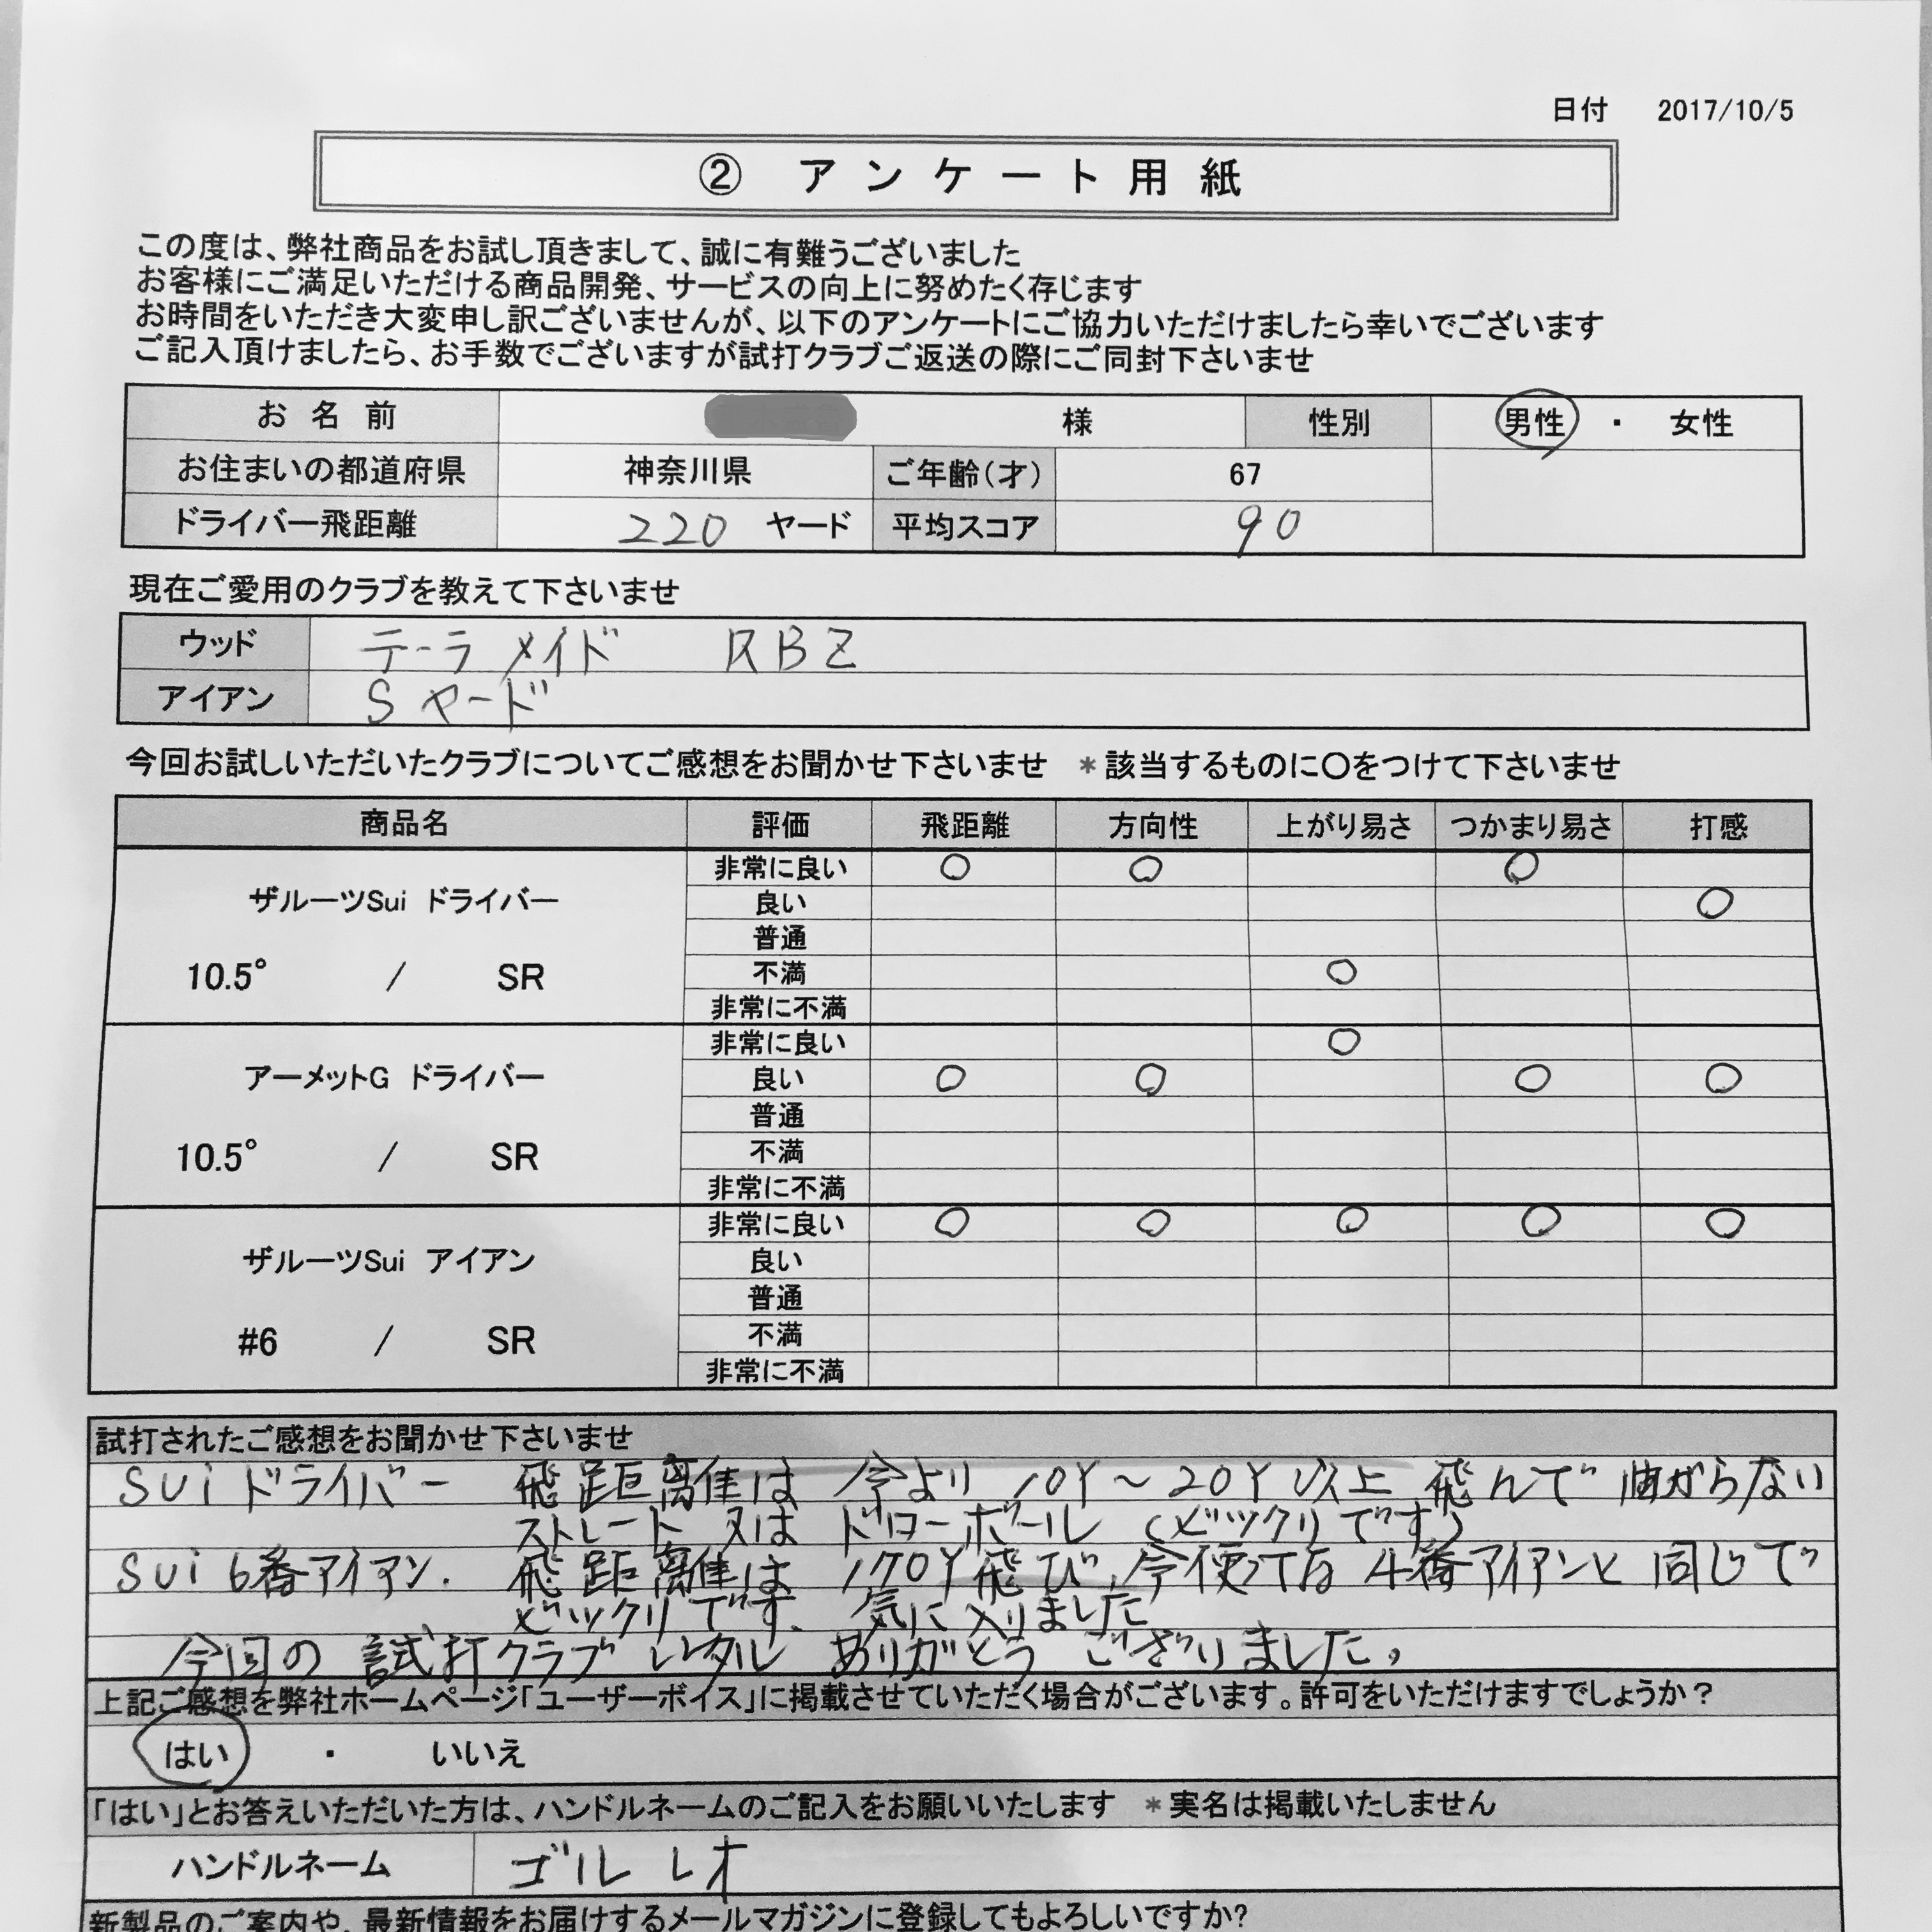 日付 2017/10/5
② アンケート用紙
この度は、弊社商品をお試し頂きまして、誠に有難うございました
お客様にご満足いただける商品開発、サービスの向上に努めたく存じます
お時間をいただき大変申し訳ございませんが、以下のアンケートにご協力いただけましたら幸いでございます
ご記入頂けましたら、お手数でございますが試打クラブご返送の際にご同封下さいませ
お名前 様 性別 男性 ・ 女性
お住まいの都道府県 神奈川県 ご年齢(才) 67
ドライバー飛距離 220 ヤード 平均スコア 90
現在ご愛用のクラブを教えて下さいませ
ウッド テーラメイド RBZ
アイアン Sヤード
今回お試しいただいたクラブについてご感想をお聞かせ下さいませ *該当するものに〇をつけて下さいませ
商品名 評価 飛距離 方向性 上がり易さ つかまり易さ 打感
ザルーツSui ドライバー
10.5° / SR
非常に良い 〇 〇 〇
良い 〇
普通
不満 〇
非常に不満
アーメットG ドライバー
10.5° / SR
非常に良い 〇
良い 〇 〇 〇 〇
普通
不満
非常に不満
ザルーツSui アイアン
#6 / SR
非常に良い 〇 〇 〇 〇 〇
良い
普通
不満
非常に不満
試打されたご感想をお聞かせ下さいませ
SUiドライバー 飛距離は 今より 10Y～20Y以上 飛んで 曲がらない
ストレート又は ドローボール (ビックリです)
SUi 6番アイアン. 飛距離は 170Y飛び、今使ってる 4番アイアンと同じで
ビックリです. 気に入りました
今回の 試打クラブ レンタル ありがとう ございました。
上記ご感想を弊社ホームページ「ユーザーボイス」に掲載させていただく場合がございます。許可をいただけますでしょうか？
はい ・ いいえ
「はい」とお答えいただいた方は、ハンドルネームのご記入をお願いいたします *実名は掲載いたしません
ハンドルネーム ゴルレオ
新製品のご案内や、最新情報をお届けするメールマガジンに登録してもよろしいですか?